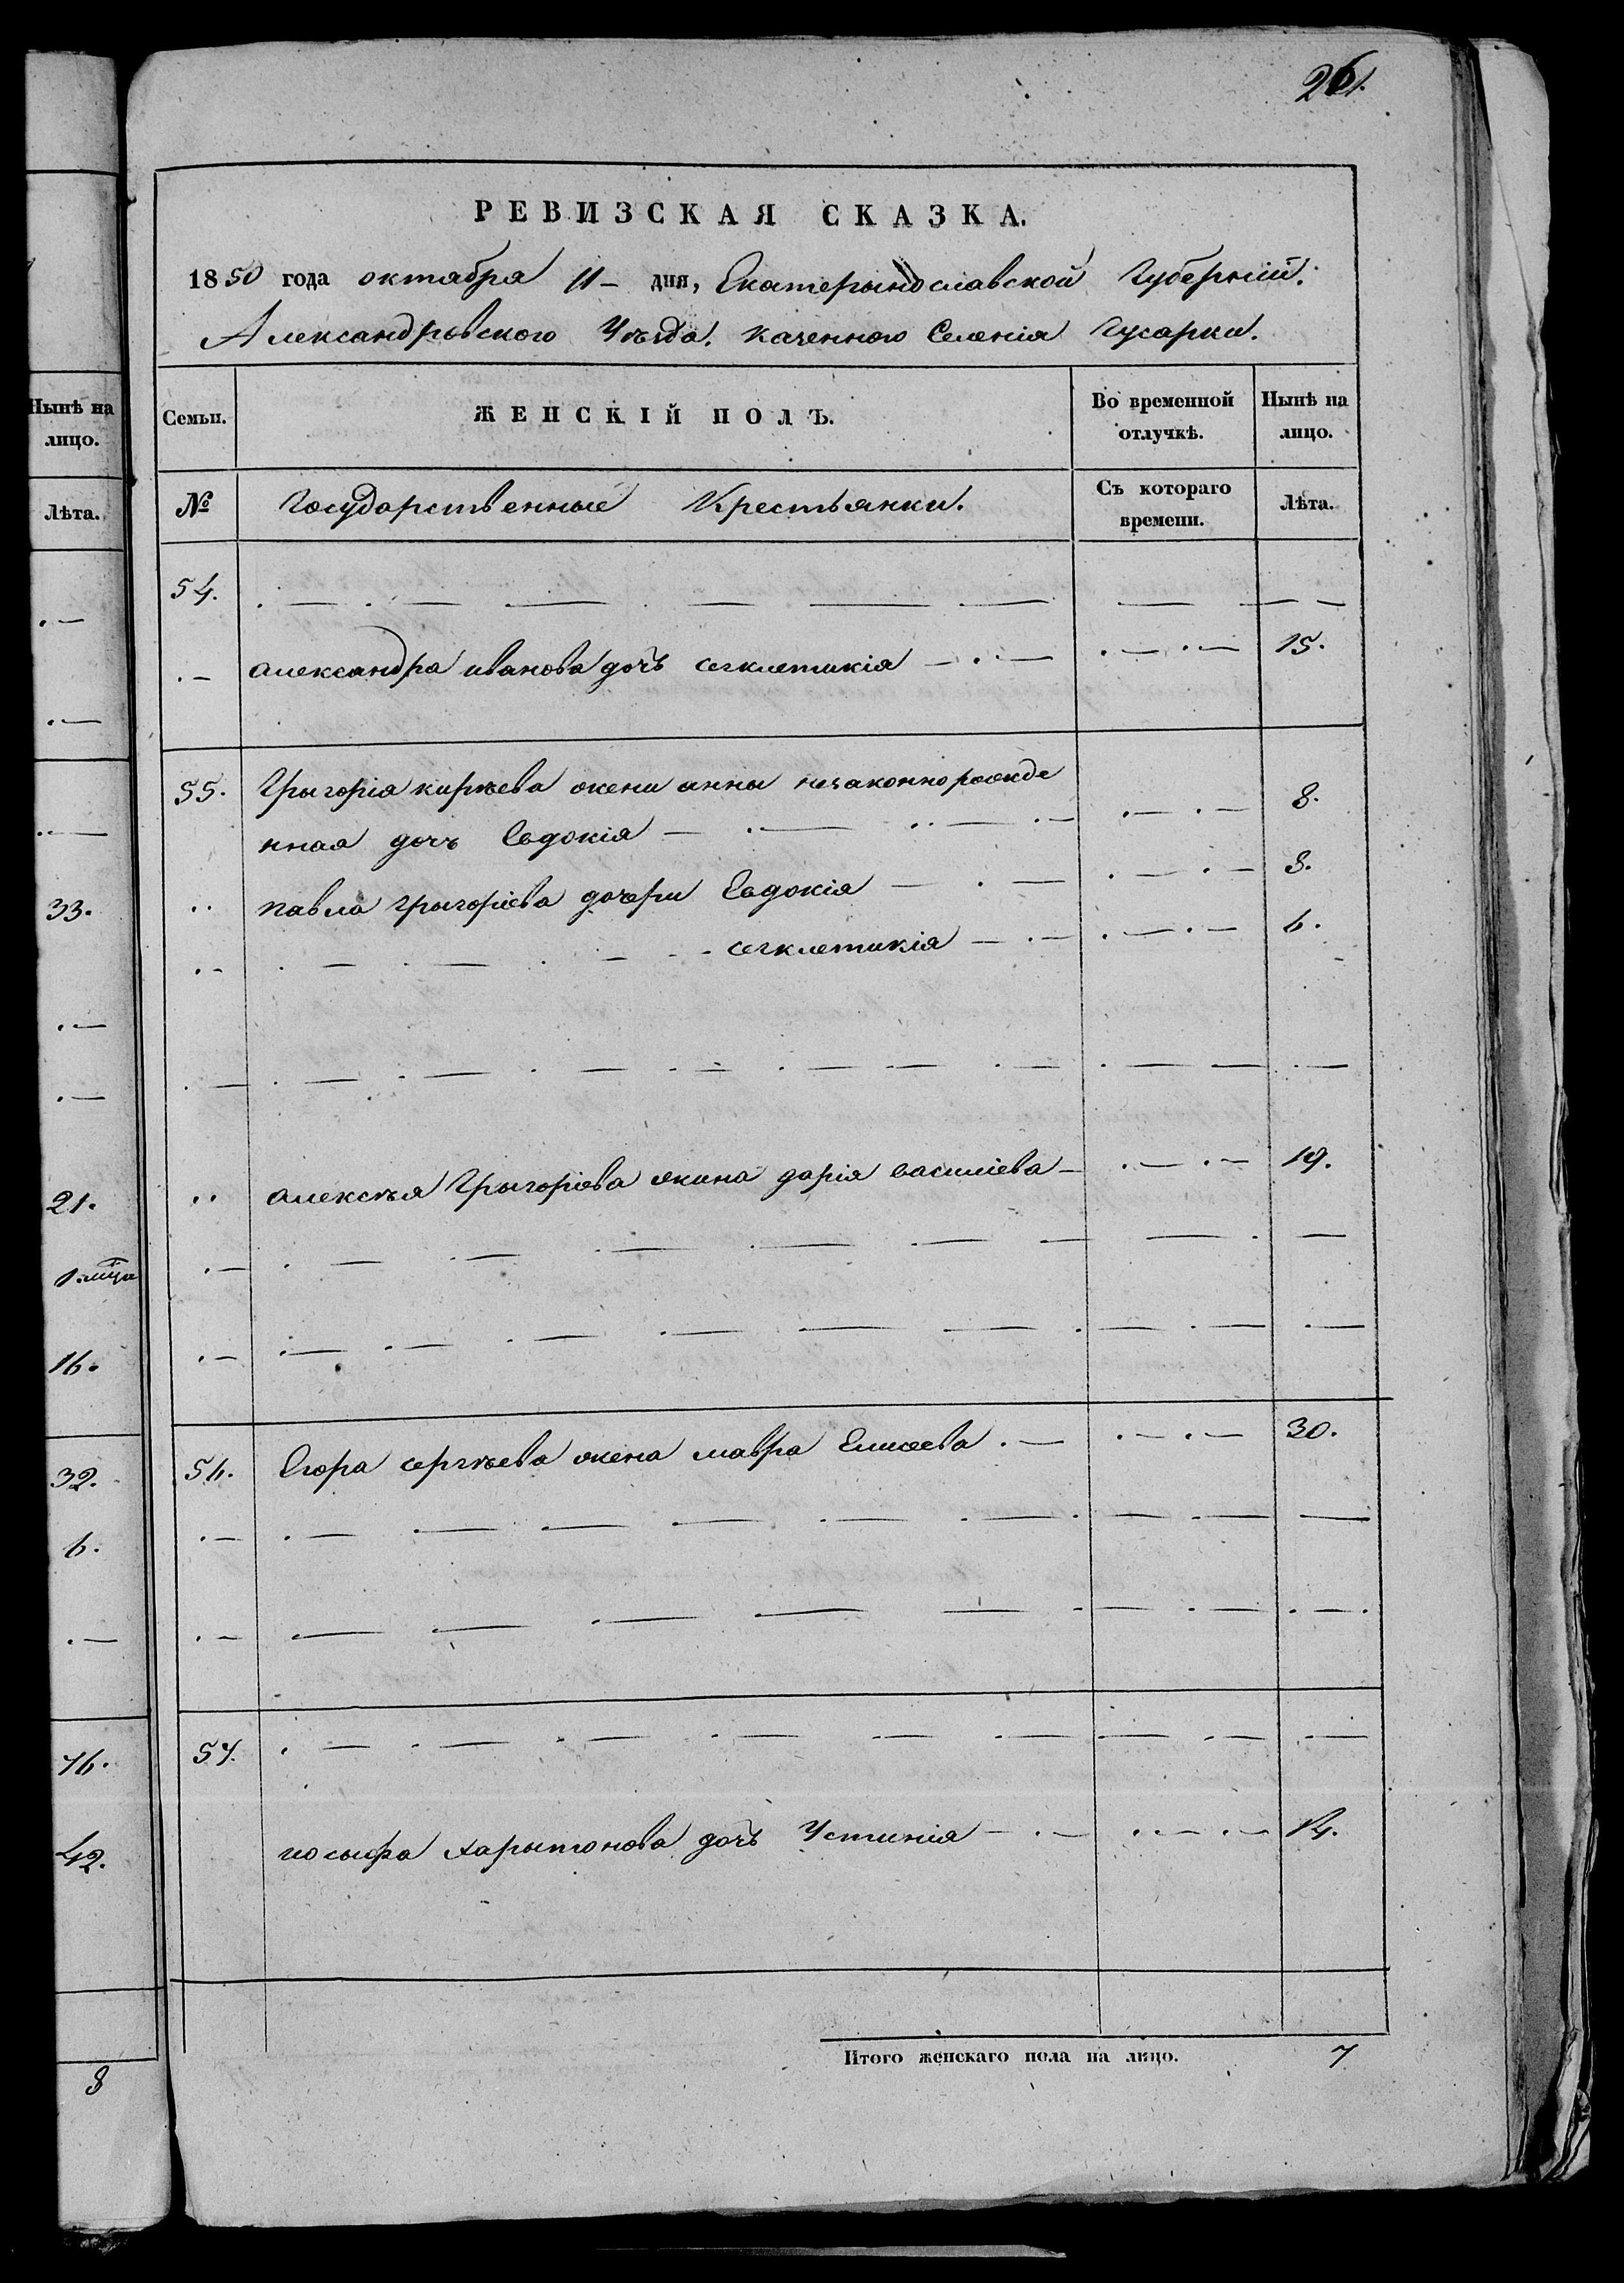 261.
РЕВИЗСКАЯ СКАЗКА.
1850 года октабра 11 - дня, Екатерынославской Губерніи.
Александровского Уѣзда. Казенного Селенія Гусарки.
Семьи. ЖЕНСКІЙ ПОЛЪ. Во временной отлучкѣ. Нынѣ на лицо.
№ Государственные Крестьянки. Съ котораго времени. Лѣта.
54.
александра иванова дочъ секлетикія 15.
55. Грыгорія кирѣева жени анны незаконнорожде
нная дочъ Евдокія 8.
павла грыгоріева дочери Евдокія 8.
секлетикія 6.
алексѣя Грыгоріева жина дарія василіева 19.
56. Егора сергѣева жена мавра Елисеева 30.
57.
иосыфа харытонова дочъ Устинія 14.
Итого женскаго пола на лицо. 7
Нынѣ на
лицо.
Лѣта.
33.
21.
16.
32.
6.
76.
42.
8